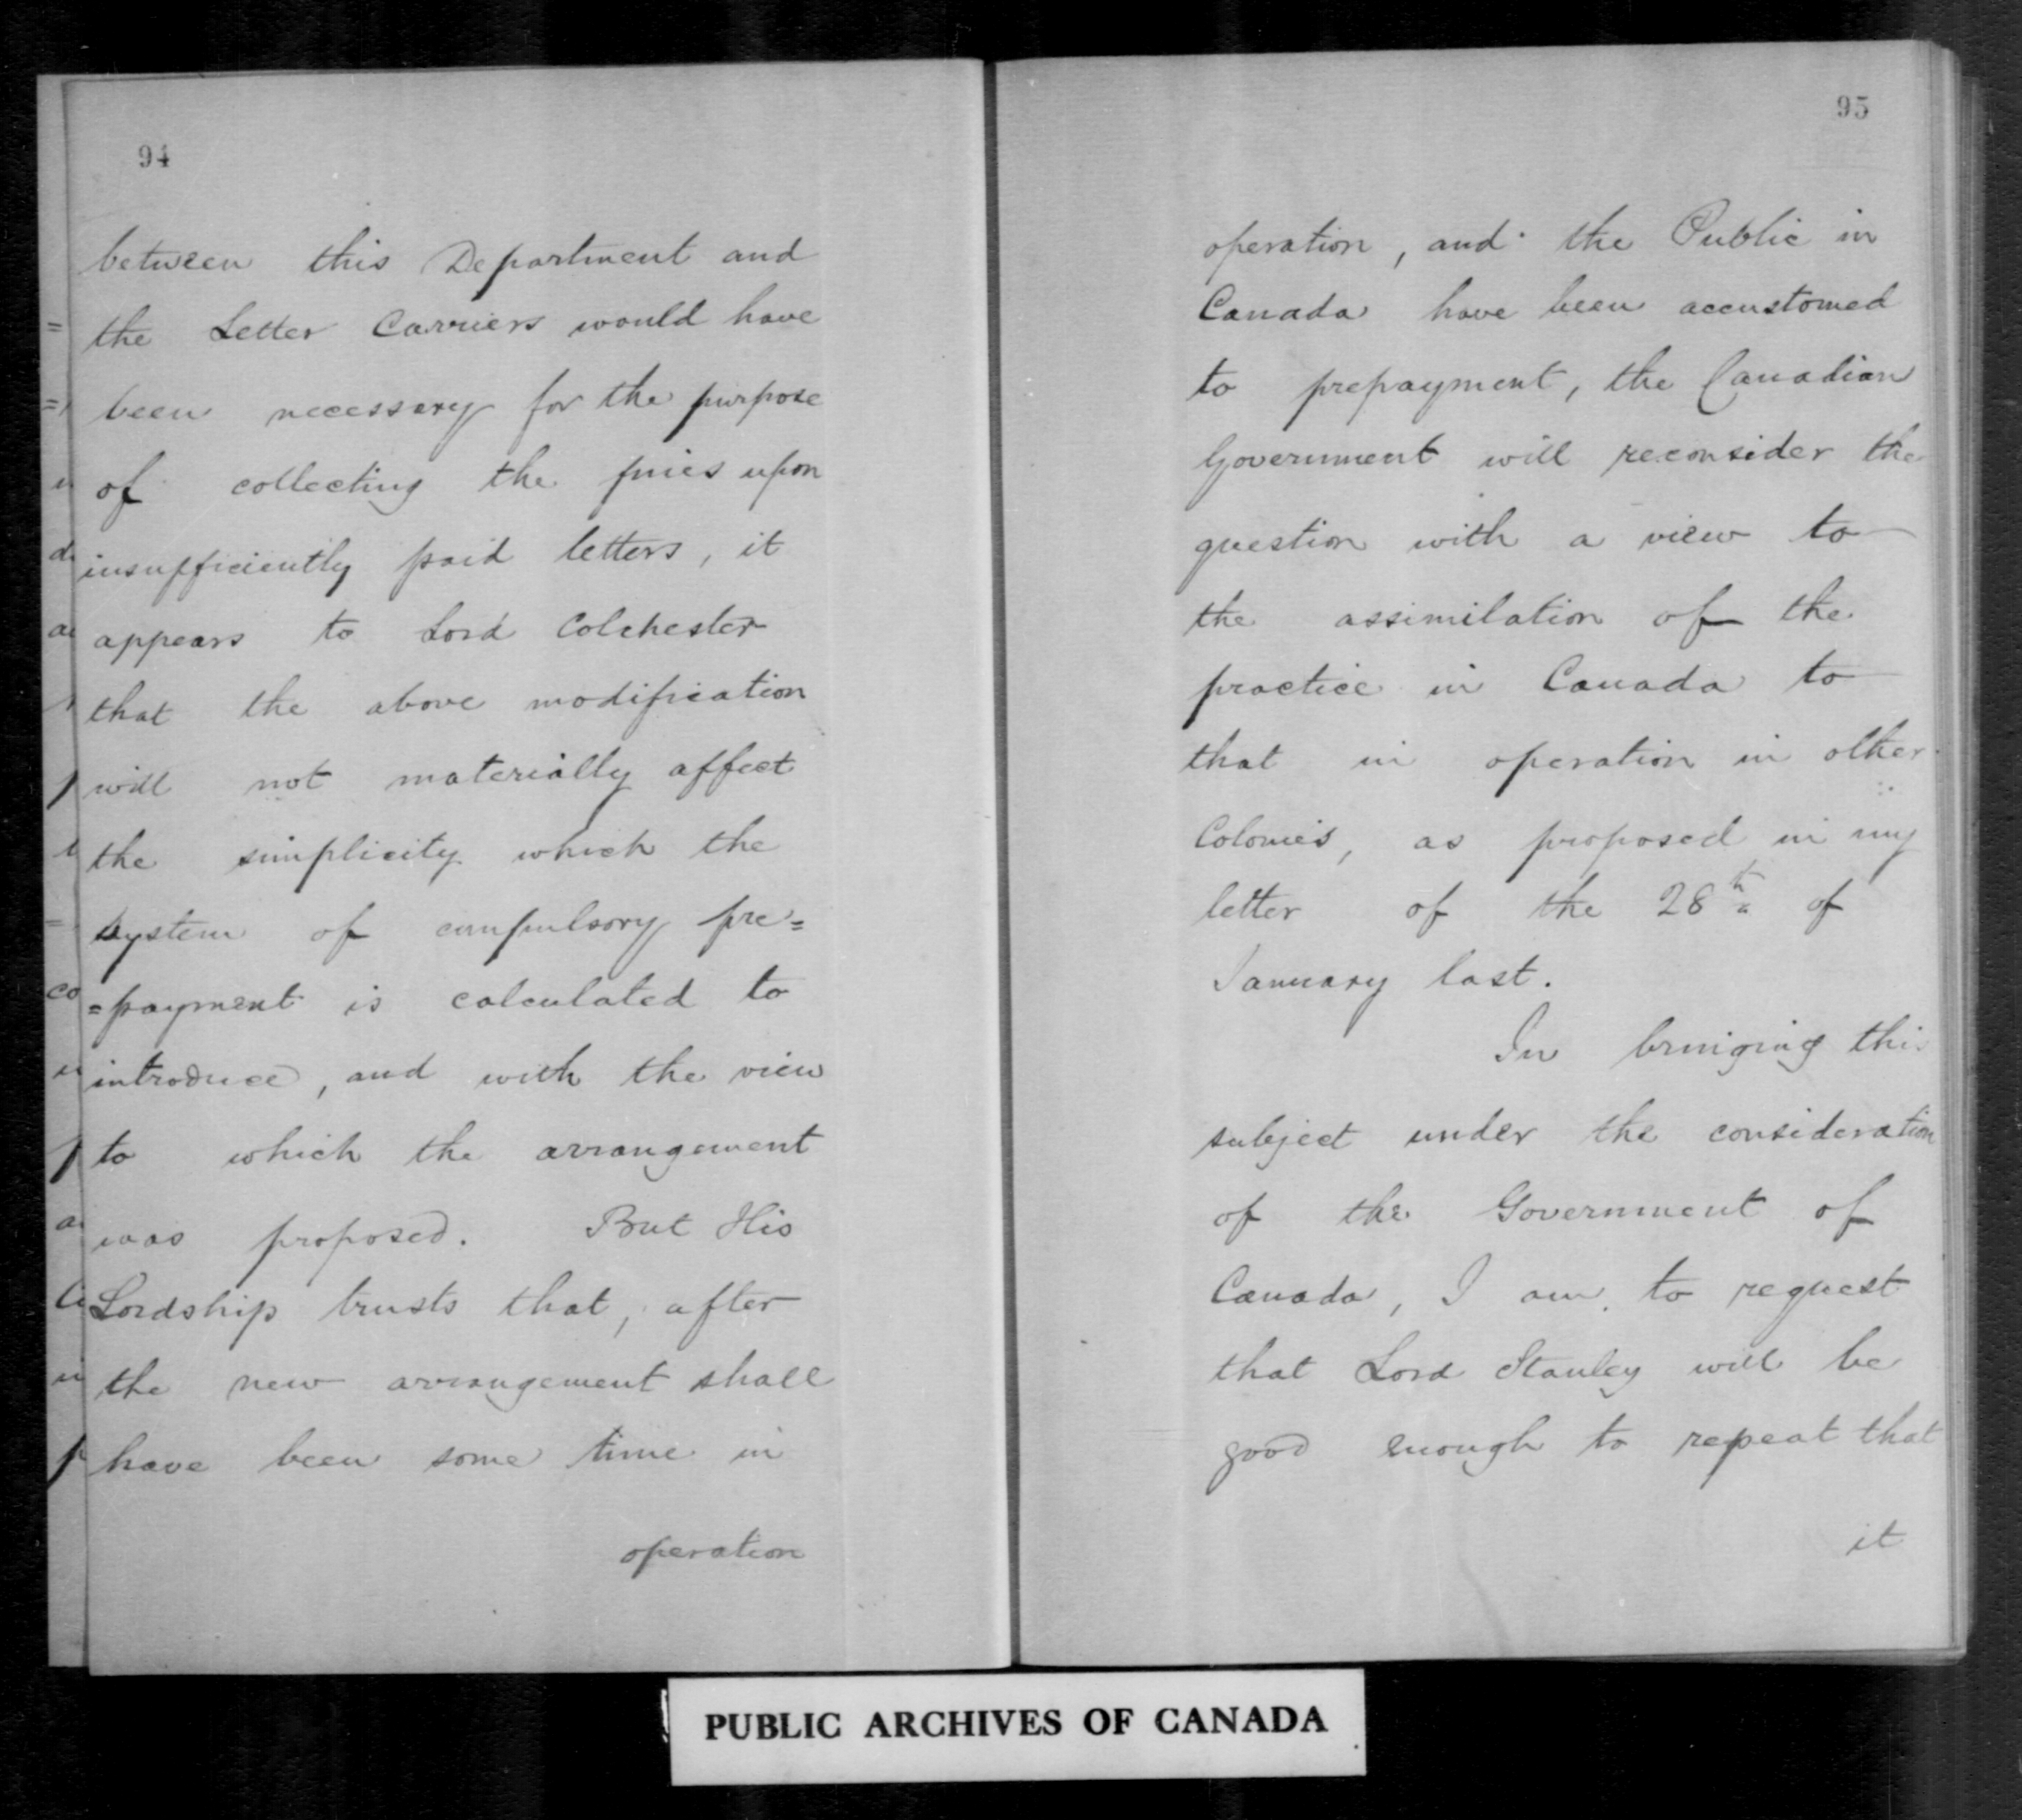 94
between this Department and
the Letter Carriers would have
been necessary for the purpose
of collecting the fines upon
insufficiently paid letters, it
appears to Lord Colchester
that the above modification
will not materially affect
the simplicity which the
system of compulsory pre=
=payment is calculated to
introduce, and with the view
to which the arrangement
was proposed. But His
Lordship trusts that, after
the new arrangement shall
have been some time in
operation
95
operation, and the Public in
Canada have been accustomed
to prepayment, the Canadian
Government will reconsider the
question with a view to
the assimilation of the
practice in Canada to
that in operation in other
Colonies, as proposed in my
letter of the 28th of
January last.
In bringing this
subject under the consideration
of the Government of
Canada, I am to request
that Lord Stanley will be
good enough to repeat that
it
PUBLIC ARCHIVES OF CANADA